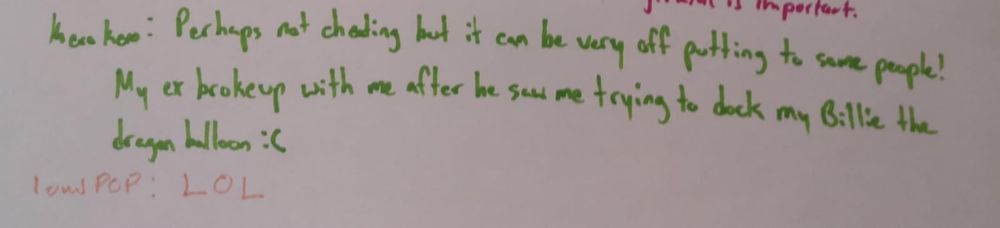 is important.
kero kero: Perhaps not cheating but it can be very off putting to some people!
My ex brokeup with me after he saw me trying to dock my Billie the
dragon balloon :C
loudPOP: LOL